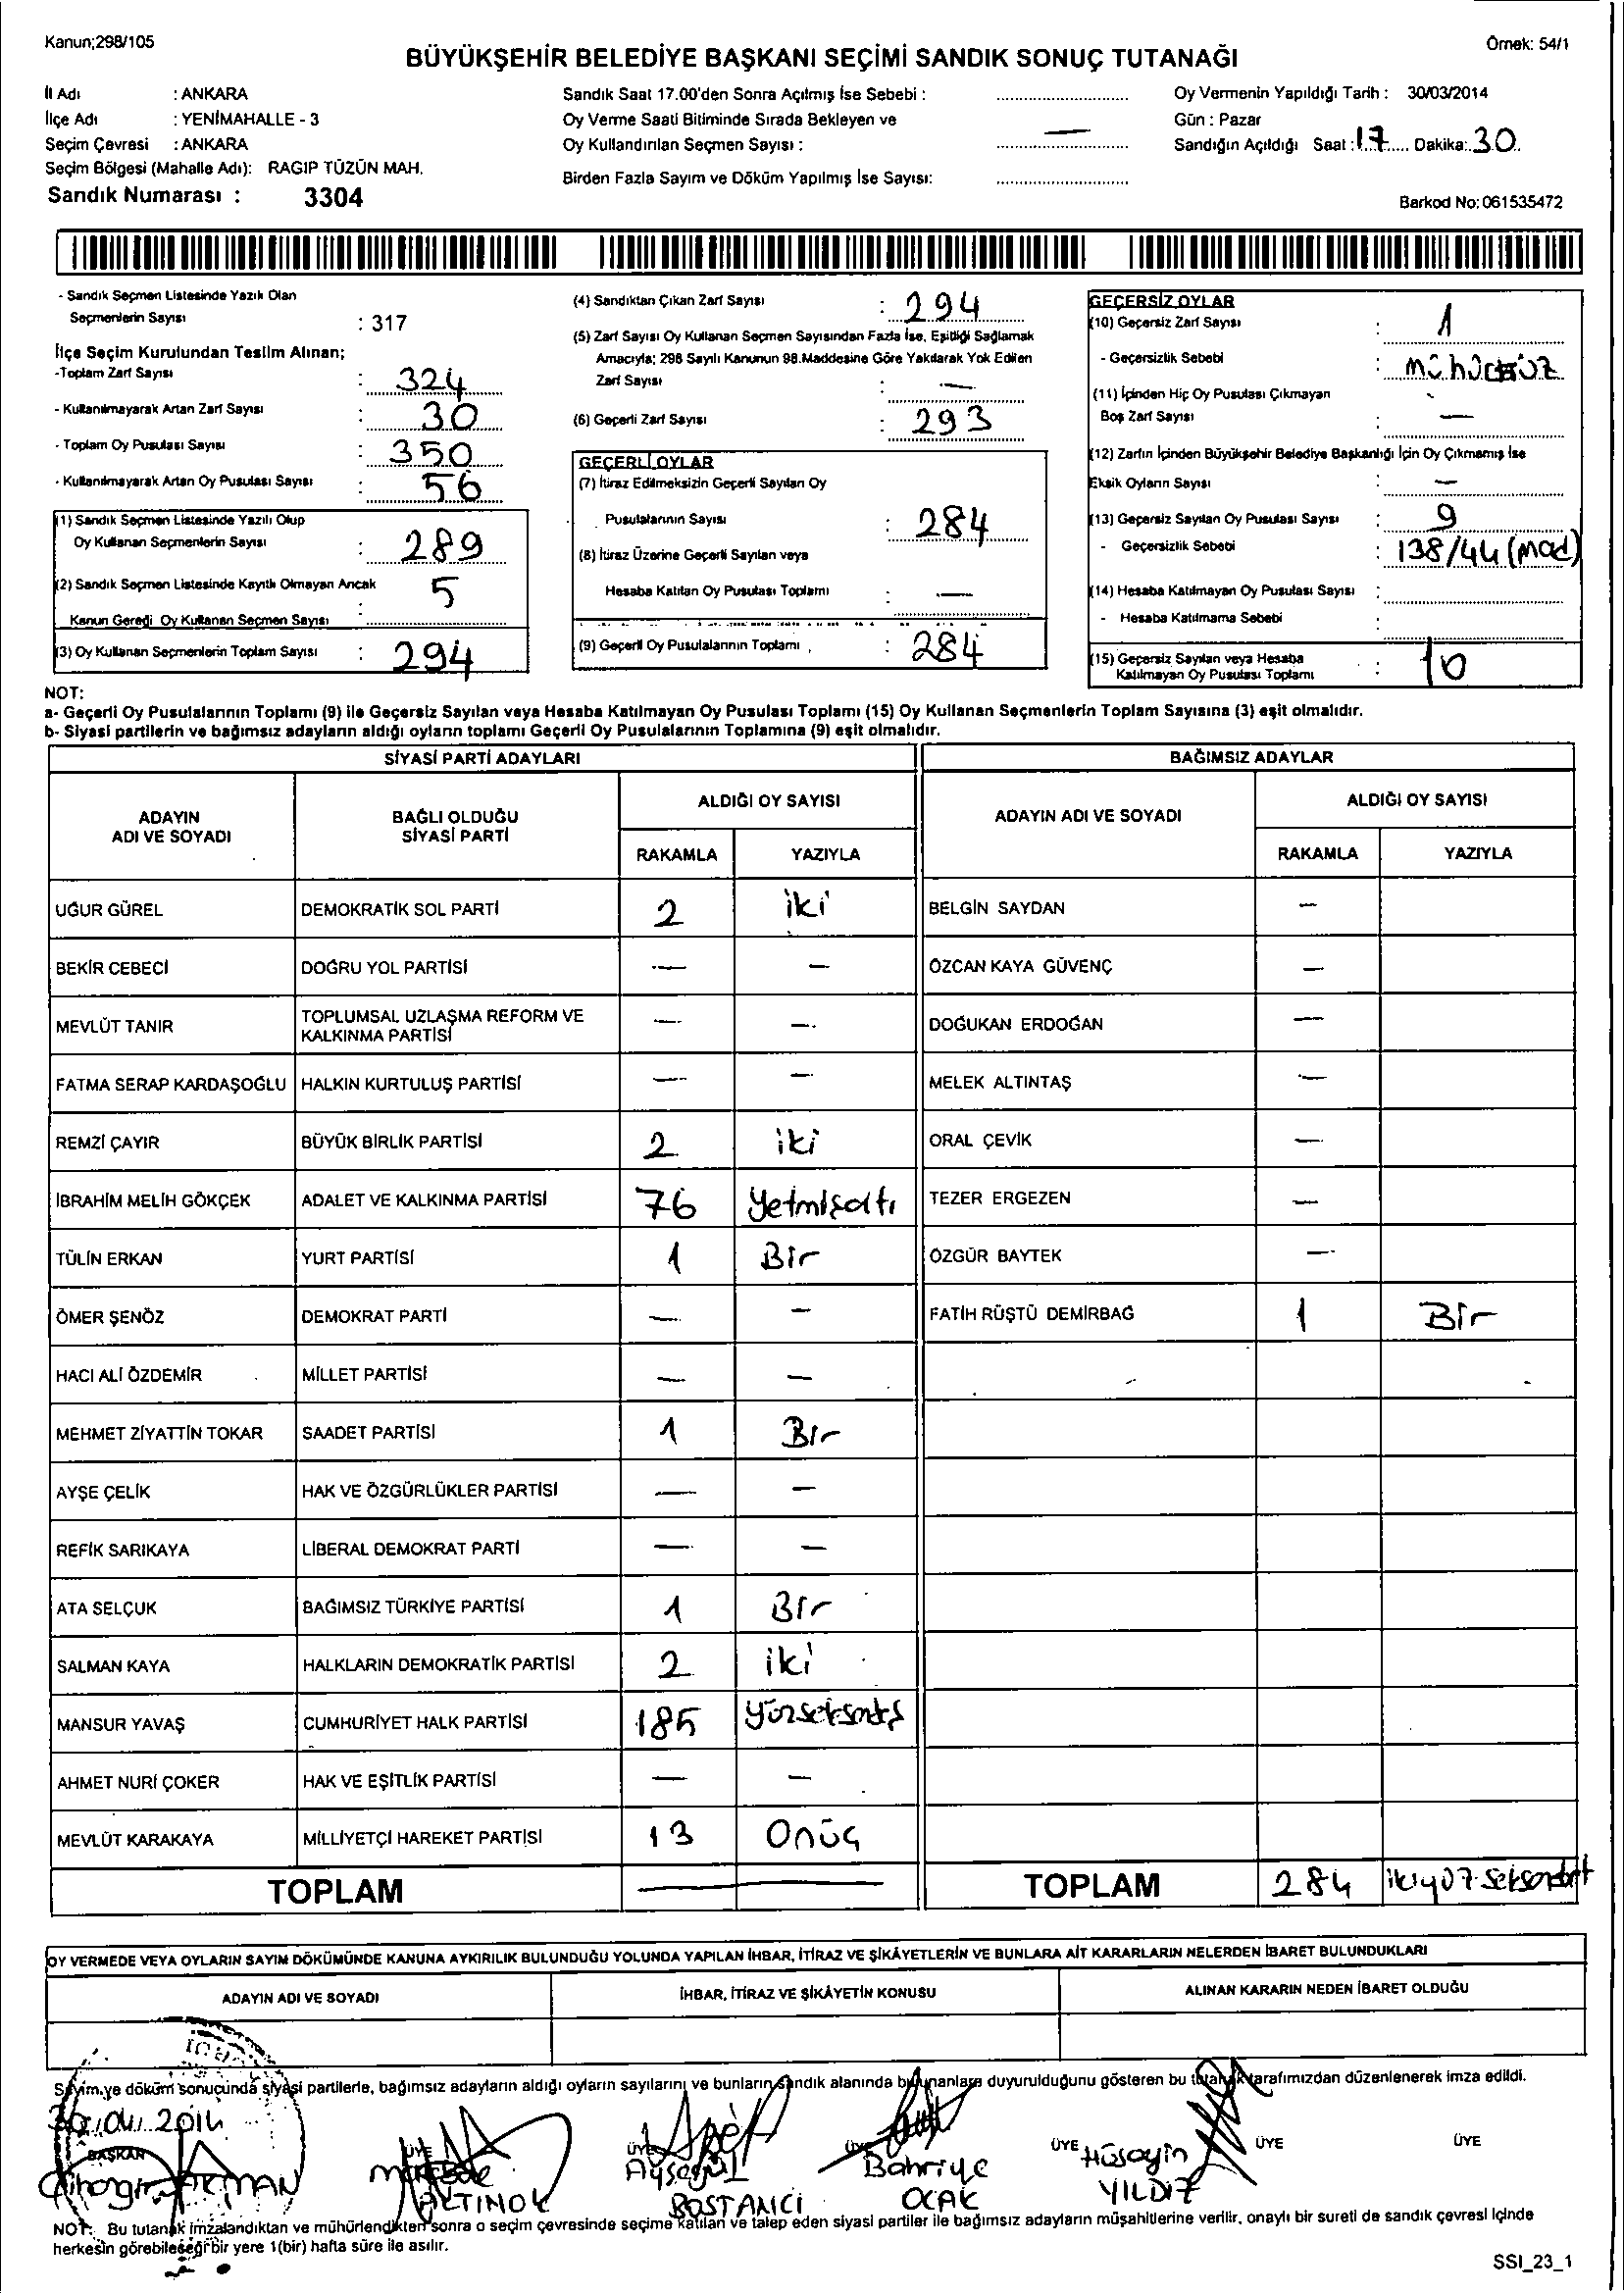 Kanun;298/105
Örnek: 54/1
BÜYÜKŞEHİR BELEDİYE BAŞKANI SEÇİMİ SANDIK SONUÇ TUTANAĞI
İl Adı : ANKARA
İlçe Adı : YENİMAHALLE - 3
Seçim Çevresi : ANKARA
Seçim Bölgesi (Mahalle Adı): RAGIP TÜZÜN MAH.
Sandık Numarası : 3304
Sandık Saat 17.00'den Sonra Açılmış İse Sebebi :
Oy Verme Saati Bitiminde Sırada Bekleyen ve
Oy Kullandırılan Seçmen Sayısı : —
Birden Fazla Sayım ve Döküm Yapılmış İse Sayısı:
Oy Vermenin Yapıldığı Tarih : 30/03/2014
Gün : Pazar
Sandığın Açıldığı Saat : 17 Dakika: 30
Barkod No: 061535472
- Sandık Seçmen Listesinde Yazılı Olan
Seçmenlerin Sayısı : 317
İlçe Seçim Kurulundan Teslim Alınan;
-Toplam Zarf Sayısı : 324
- Kullanılmayarak Artan Zarf Sayısı : 30
- Toplam Oy Pusulası Sayısı : 350
- Kullanılmayarak Artan Oy Pusulası Sayısı : 56
(1) Sandık Seçmen Listesinde Yazılı Olup
Oy Kullanan Seçmenlerin Sayısı : 289
(2) Sandık Seçmen Listesinde Kayıtlı Olmayan Ancak
Kanun Gereği Oy Kullanan Seçmen Sayısı : 5
(3) Oy Kullanan Seçmenlerin Toplam Sayısı : 294
(4) Sandıktan Çıkan Zarf Sayısı : 294
(5) Zarf Sayısı Oy Kullanan Seçmen Sayısından Fazla İse, Eşitliği Sağlamak
Amacıyla; 298 Sayılı Kanunun 98.Maddesine Göre Yakılarak Yok Edilen
Zarf Sayısı : —
(6) Geçerli Zarf Sayısı : 293
GEÇERLİ OYLAR
(7) İtiraz Edilmeksizin Geçerli Sayılan Oy
Pusulalarının Sayısı : 284
(8) İtiraz Üzerine Geçerli Sayılan veya
Hesaba Katılan Oy Pusulası Toplamı : —
(9) Geçerli Oy Pusulalarının Toplamı : 284
GEÇERSİZ OYLAR
(10) Geçersiz Zarf Sayısı : 1
- Geçersizlik Sebebi : mühürsüz
(11) İçinden Hiç Oy Pusulası Çıkmayan
Boş Zarf Sayısı : —
(12) Zarfın İçinden Büyükşehir Belediye Başkanlığı İçin Oy Çıkmamış İse
Eksik Oyların Sayısı : —
(13) Geçersiz Sayılan Oy Pusulası Sayısı : 9
- Geçersizlik Sebebi : 138/44 (mad)
(14) Hesaba Katılmayan Oy Pusulası Sayısı :
- Hesaba Katılmama Sebebi :
(15) Geçersiz Sayılan veya Hesaba
Katılmayan Oy Pusulası Toplamı : 10
NOT:
a- Geçerli Oy Pusulalarının Toplamı (9) ile Geçersiz Sayılan veya Hesaba Katılmayan Oy Pusulası Toplamı (15) Oy Kullanan Seçmenlerin Toplam Sayısına (3) eşit olmalıdır.
b- Siyasi partilerin ve bağımsız adayların aldığı oyların toplamı Geçerli Oy Pusulalarının Toplamına (9) eşit olmalıdır.
SİYASİ PARTİ ADAYLARI
BAĞIMSIZ ADAYLAR
ADAYIN
ADI VE SOYADI
BAĞLI OLDUĞU
SİYASİ PARTİ
ALDIĞI OY SAYISI
RAKAMLA YAZIYLA
ADAYIN ADI VE SOYADI
ALDIĞI OY SAYISI
RAKAMLA YAZIYLA
UĞUR GÜREL DEMOKRATİK SOL PARTİ 2 iki BELGİN SAYDAN —
BEKİR CEBECİ DOĞRU YOL PARTİSİ — — ÖZCAN KAYA GÜVENÇ —
MEVLÜT TANIR TOPLUMSAL UZLAŞMA REFORM VE
KALKINMA PARTİSİ — — DOĞUKAN ERDOĞAN —
FATMA SERAP KARDAŞOĞLU HALKIN KURTULUŞ PARTİSİ — — MELEK ALTINTAŞ —
REMZİ ÇAYIR BÜYÜK BİRLİK PARTİSİ 2 iki ORAL ÇEVİK —
İBRAHİM MELİH GÖKÇEK ADALET VE KALKINMA PARTİSİ 76 Yetmişaltı TEZER ERGEZEN —
TÜLİN ERKAN YURT PARTİSİ 1 Bir ÖZGÜR BAYTEK —
ÖMER ŞENÖZ DEMOKRAT PARTİ — — FATİH RÜŞTÜ DEMİRBAĞ 1 Bir
HACI ALİ ÖZDEMİR MİLLET PARTİSİ — —
MEHMET ZİYATTİN TOKAR SAADET PARTİSİ 1 Bir
AYŞE ÇELİK HAK VE ÖZGÜRLÜKLER PARTİSİ — —
REFİK SARIKAYA LİBERAL DEMOKRAT PARTİ — —
ATA SELÇUK BAĞIMSIZ TÜRKİYE PARTİSİ 1 Bir
SALMAN KAYA HALKLARIN DEMOKRATİK PARTİSİ 2 iki
MANSUR YAVAŞ CUMHURİYET HALK PARTİSİ 185
AHMET NURİ ÇOKER HAK VE EŞİTLİK PARTİSİ — —
MEVLÜT KARAKAYA MİLLİYETÇİ HAREKET PARTİSİ 13 Onüç
TOPLAM — TOPLAM 284 ikiyüz seksendört
OY VERMEDE VEYA OYLARIN SAYIM DÖKÜMÜNDE KANUNA AYKIRILIK BULUNDUĞU YOLUNDA YAPILAN İHBAR, İTİRAZ VE ŞİKÂYETLERİN VE BUNLARA AİT KARARLARIN NELERDEN İBARET BULUNDUKLARI
ADAYIN ADI VE SOYADI İHBAR, İTİRAZ VE ŞİKÂYETİN KONUSU ALINAN KARARIN NEDEN İBARET OLDUĞU
Sayım ve döküm sonucunda siyasi partilerle, bağımsız adayların aldığı oyların sayılarını ve bunların sandık alanında bulunanlara duyurulduğunu gösteren bu tutanak tarafımızdan düzenlenerek imza edildi.
BAŞKAN ÜYE ÜYE ÜYE ÜYE ÜYE ÜYE
Ayşegül Bahriye Hüseyin
ALTINOK BOSTANCI OCAK YILDIZ
NOT: Bu tutanak imzalandıktan ve mühürlendikten sonra o seçim çevresinde seçime katılan ve talep eden siyasi partiler ile bağımsız adayların müşahitlerine verilir, onaylı bir sureti de sandık çevresi içinde
herkesin görebileceği bir yere 1(bir) hafta süre ile asılır.
SSI_23_1